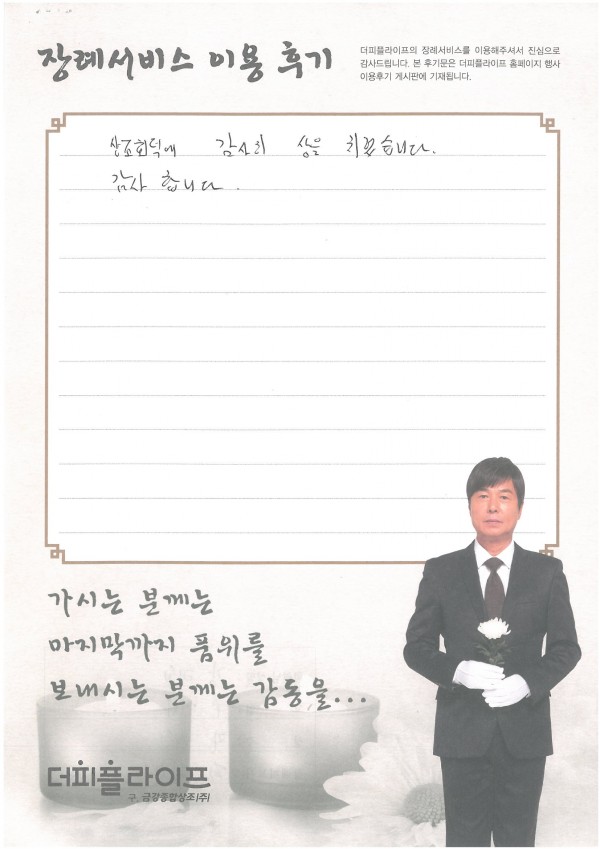 장례서비스 이용 후기
더피플라이프의 장례서비스를 이용해주셔서 진심으로
감사드립니다. 본 후기문은 더피플라이프 홈페이지 행사
이용후기 게시판에 기재됩니다.
상조회덕에 감사히 상을 치렀습니다.
감사 합니다.
가시는 분께는
마지막까지 품위를
보내시는 분께는 감동을...
더피플라이프
구. 금강종합상조(주)